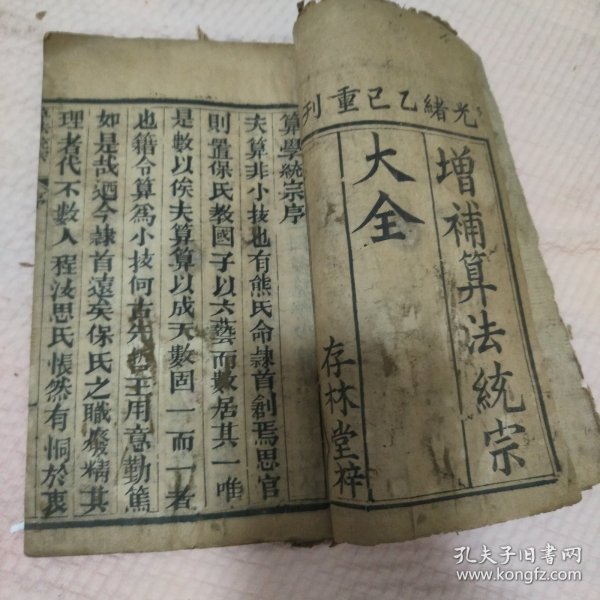 光緒乙巳重刊
增補算法統宗
大全
存林堂梓
算學統宗序
夫算非小技也有熊氏命隸首創焉思官
則置保氏教國子以六藝而數居其一唯
是數以俟夫算算以成天數固一而一者
也籍令算為小技何古先 王用意勤篤
如是哉迺今隸首遠矣保氏之職癈精其
理者代不數人程汝思氏悵然有恫於衷
孔夫子旧书网
www.kongfz.com